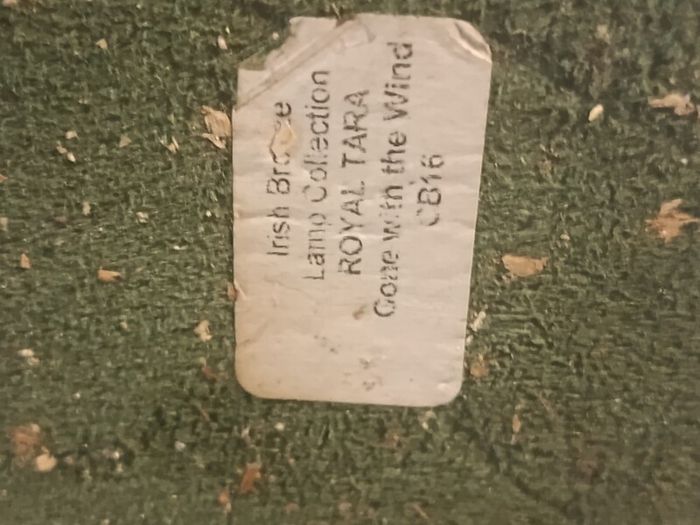 Irish Bronze
Lamp Collection
ROYAL TARA
Gone with the Wind
CB16